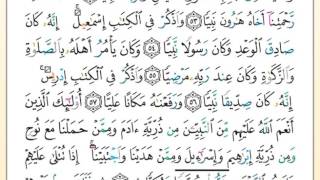 رَّحْمَتِنَآ أَخَاهُ هَـٰرُونَ نَبِيًّا ٥٣ وَٱذْكُرْ فِى ٱلْكِتَـٰبِ إِسْمَـٰعِيلَ ۚ إِنَّهُۥ كَانَ
صَادِقَ ٱلْوَعْدِ وَكَانَ رَسُولًا نَّبِيًّا ٥٤ وَكَانَ يَأْمُرُ أَهْلَهُۥ بِٱلصَّلَوٰةِ
وَٱلزَّكَوٰةِ وَكَانَ عِندَ رَبِّهِۦ مَرْضِيًّا ٥٥ وَٱذْكُرْ فِى ٱلْكِتَـٰبِ إِدْرِيسَ ۚ
إِنَّهُۥ كَانَ صِدِّيقًا نَّبِيًّا ٥٦ وَرَفَعْنَـٰهُ مَكَانًا عَلِيًّا ٥٧ أُو۟لَـٰٓئِكَ ٱلَّذِينَ
أَنْعَمَ ٱللَّهُ عَلَيْهِم مِّنَ ٱلنَّبِيِّـۧنَ مِن ذُرِّيَّةِ ءَادَمَ وَمِمَّنْ حَمَلْنَا مَعَ نُوحٍ
وَمِن ذُرِّيَّةِ إِبْرَٰهِيمَ وَإِسْرَٰٓءِيلَ وَمِمَّنْ هَدَيْنَا وَٱجْتَبَيْنَآ ۚ إِذَا تُتْلَىٰ عَلَيْهِمْ